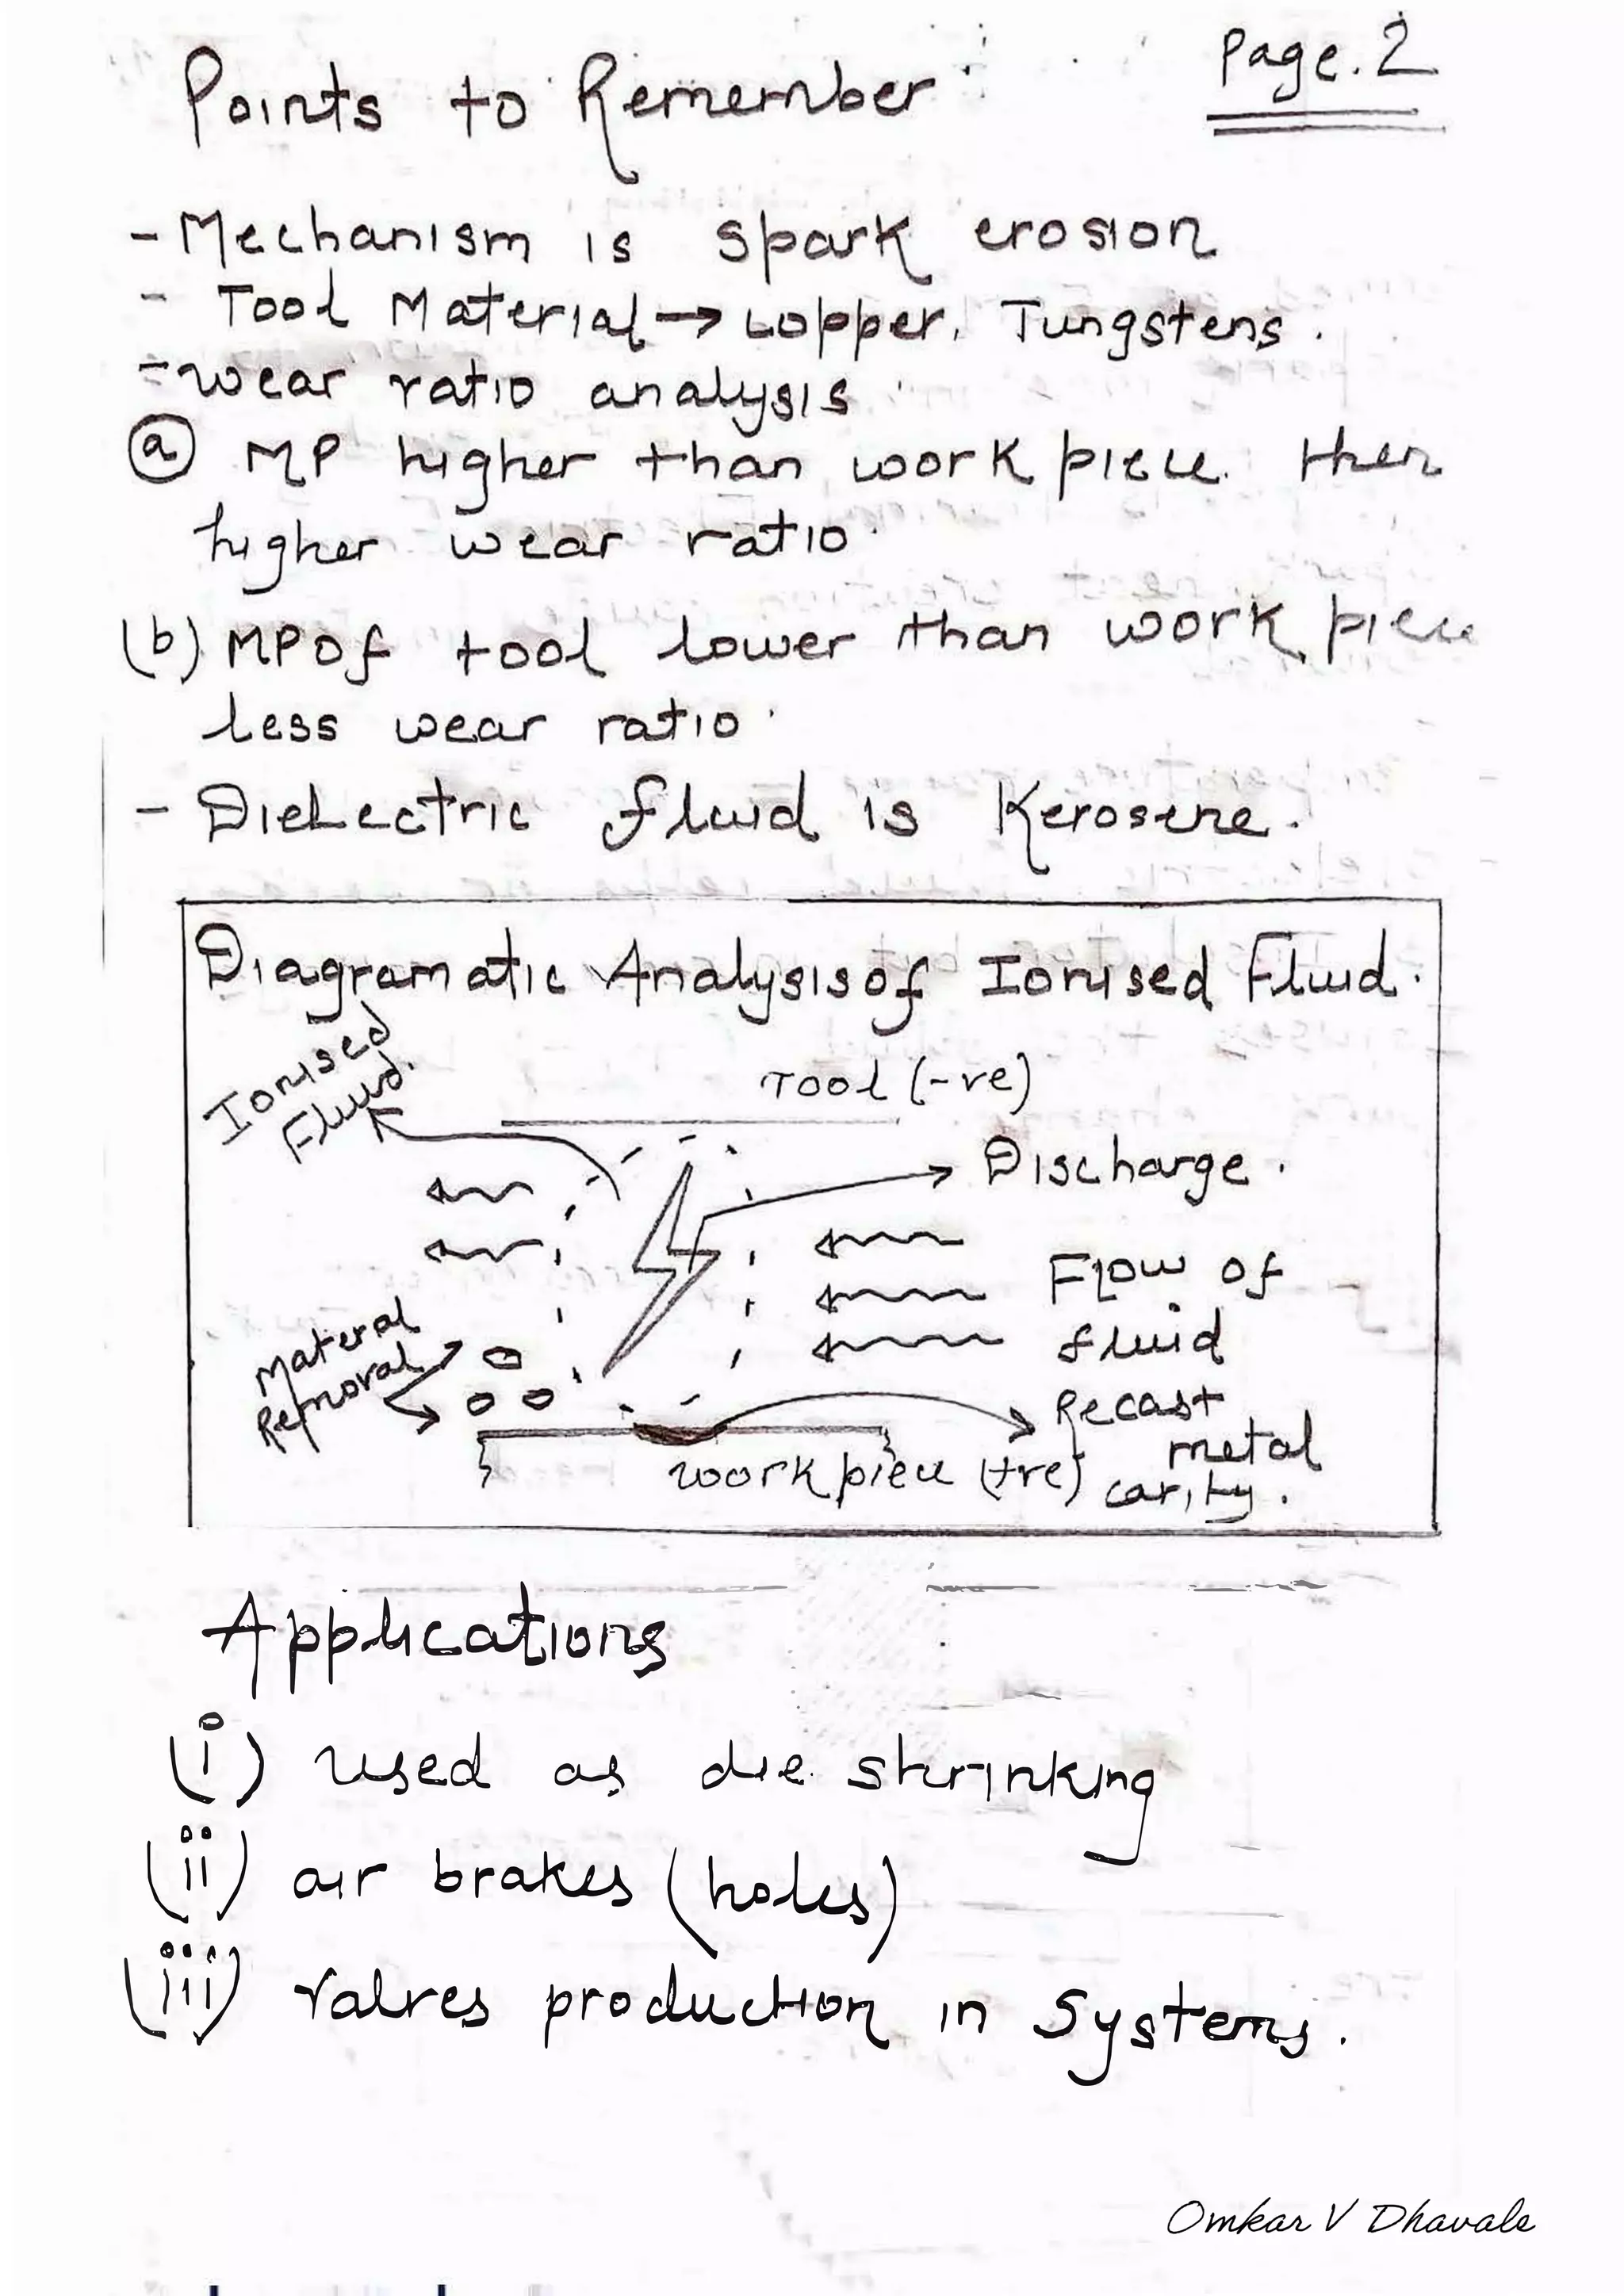 Page. 2
Points to Remember
- Mechanism is spark erosion
- Tool Material → copper, Tungstens.
- wear ratio analysis
(a) MP higher than work piece then
higher wear ratio.
(b) MP of tool lower than work piece
less wear ratio.
- Dielectric fluid is Kerosene.
Diagramatic Analysis of Ionised Fluid.
Ionised
Fluid.
Tool (-ve)
Discharge.
Flow of
fluid
Material
Removal
Recast
metal
cavity.
work piece (+ve)
Applications
(i) used as die shrinking
(ii) air brakes (holes)
(iii) valves production in Systems.
Omkar V Dhavale